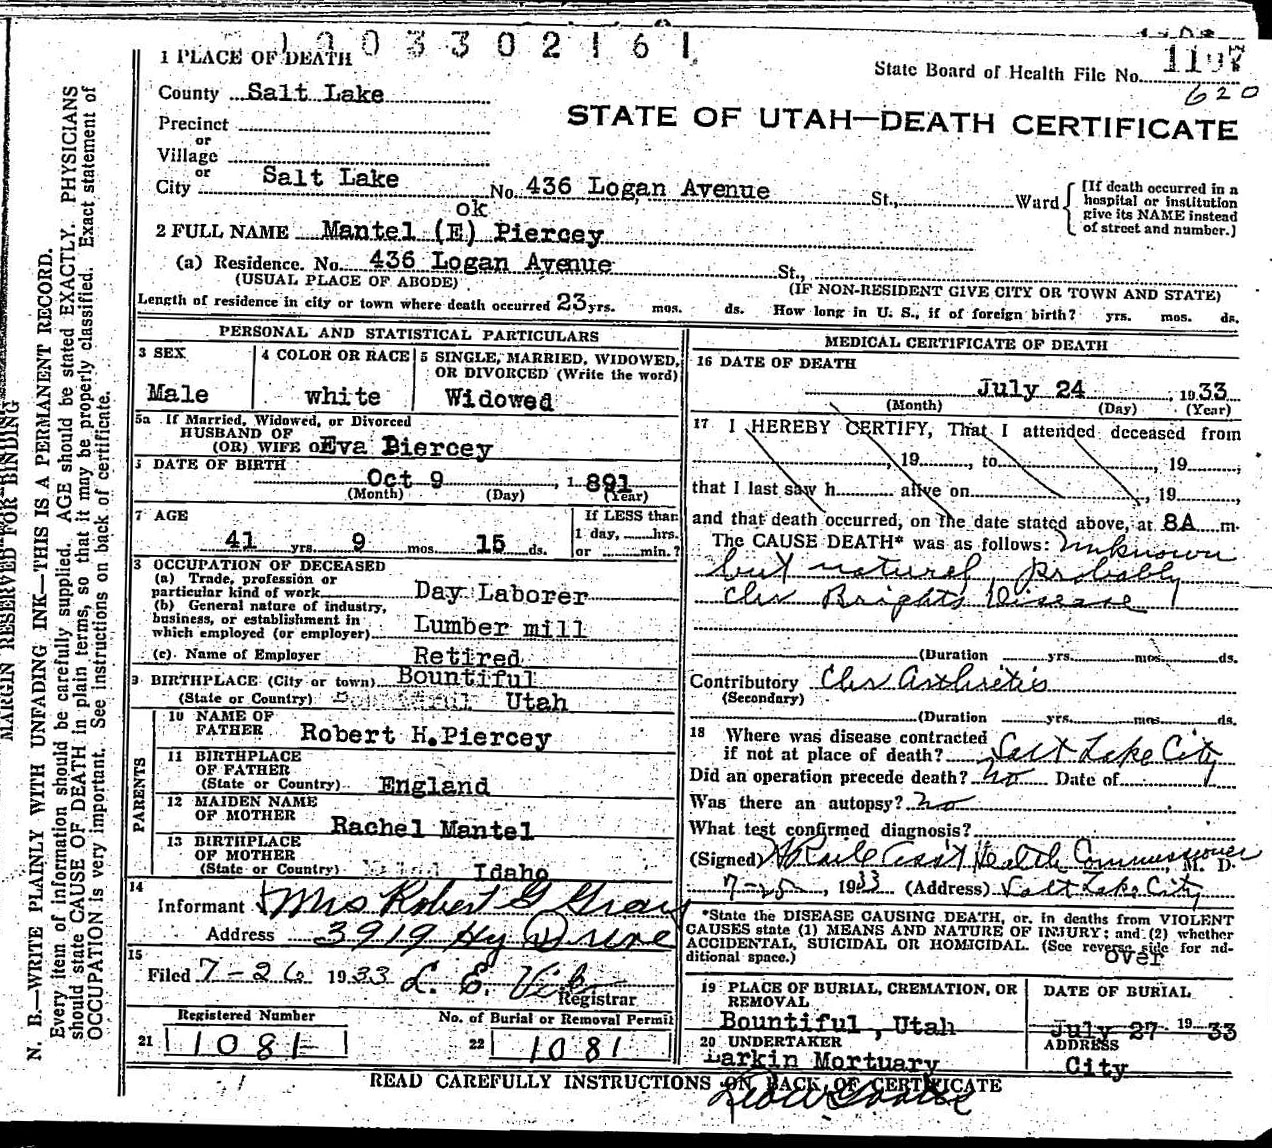 1003302161
1 PLACE OF DEATH
State Board of Health File No. 1107
620
County Salt Lake
STATE OF UTAH—DEATH CERTIFICATE
Precinct
or
Village
or
City Salt Lake No. 436 Logan Avenue St., Ward
[If death occurred in a
hospital or institution
give its NAME instead
of street and number.]
ok
2 FULL NAME Mantel (E) Piercey
(a) Residence. No. 436 Logan Avenue St.,
(USUAL PLACE OF ABODE)
(IF NON-RESIDENT GIVE CITY OR TOWN AND STATE)
Length of residence in city or town where death occurred 23 yrs. mos. ds. How long in U. S., if of foreign birth? yrs. mos. ds.
PERSONAL AND STATISTICAL PARTICULARS
3 SEX
Male
4 COLOR OR RACE
white
5 SINGLE, MARRIED, WIDOWED,
OR DIVORCED (Write the word)
Widowed
5a If Married, Widowed, or Divorced
HUSBAND OF
(OR) WIFE OF Eva Piercey
DATE OF BIRTH
Oct 9, 1891
(Month) (Day) (Year)
7 AGE
41 yrs. 9 mos. 15 ds.
If LESS than
1 day, hrs.
or min.?
OCCUPATION OF DECEASED
(a) Trade, profession or
particular kind of work Day Laborer
(b) General nature of industry,
business, or establishment in
which employed (or employer) Lumber mill
(c) Name of Employer Retired
9 BIRTHPLACE (City or town) Bountiful
(State or Country) Utah
PARENTS
10 NAME OF
FATHER Robert H. Piercey
11 BIRTHPLACE
OF FATHER
(State or Country) England
12 MAIDEN NAME
OF MOTHER
Rachel Mantel
13 BIRTHPLACE
OF MOTHER
(State or Country) Idaho
14
Informant Mrs Robert G Gray
Address 3919 Hy Drive
15
Filed 7-26 1933 L. E.
Registrar
Registered Number
21 1081
No. of Burial or Removal Permit
22 1081
MEDICAL CERTIFICATE OF DEATH
16 DATE OF DEATH
July 24, 1933
(Month) (Day) (Year)
17 I HEREBY CERTIFY, That I attended deceased from
, 19 , to , 19 ,
that I last saw h alive on , 19 ,
and that death occurred, on the date stated above, at 8A m.
The CAUSE DEATH* was as follows: Unknown
but natural, probably
Chr Brights Disease
(Duration yrs. mos. ds.
Contributory Chr Arthritis
(Secondary)
(Duration yrs. mos. ds.
18 Where was disease contracted
if not at place of death? Salt Lake City
Did an operation precede death? no Date of
Was there an autopsy? no
What test confirmed diagnosis?
(Signed) Ass't Health Commissioner M. D.
7-25, 1933 (Address) Salt Lake City
*State the DISEASE CAUSING DEATH, or, in deaths from VIOLENT
CAUSES state (1) MEANS AND NATURE OF INJURY; and (2) whether
ACCIDENTAL, SUICIDAL OR HOMICIDAL. (See reverse side for ad-
ditional space.)
over
19 PLACE OF BURIAL, CREMATION, OR
REMOVAL
Bountiful, Utah
DATE OF BURIAL
July 27 1933
20 UNDERTAKER
Larkin Mortuary
ADDRESS
City
READ CAREFULLY INSTRUCTIONS ON BACK OF CERTIFICATE
MARGIN RESERVED FOR BINDING
N. B.—WRITE PLAINLY WITH UNFADING INK—THIS IS A PERMANENT RECORD.
Every item of information should be carefully supplied. AGE should be stated EXACTLY. PHYSICIANS
should state CAUSE OF DEATH in plain terms, so that it may be properly classified. Exact statement of
OCCUPATION is very important. See instructions on back of certificate.